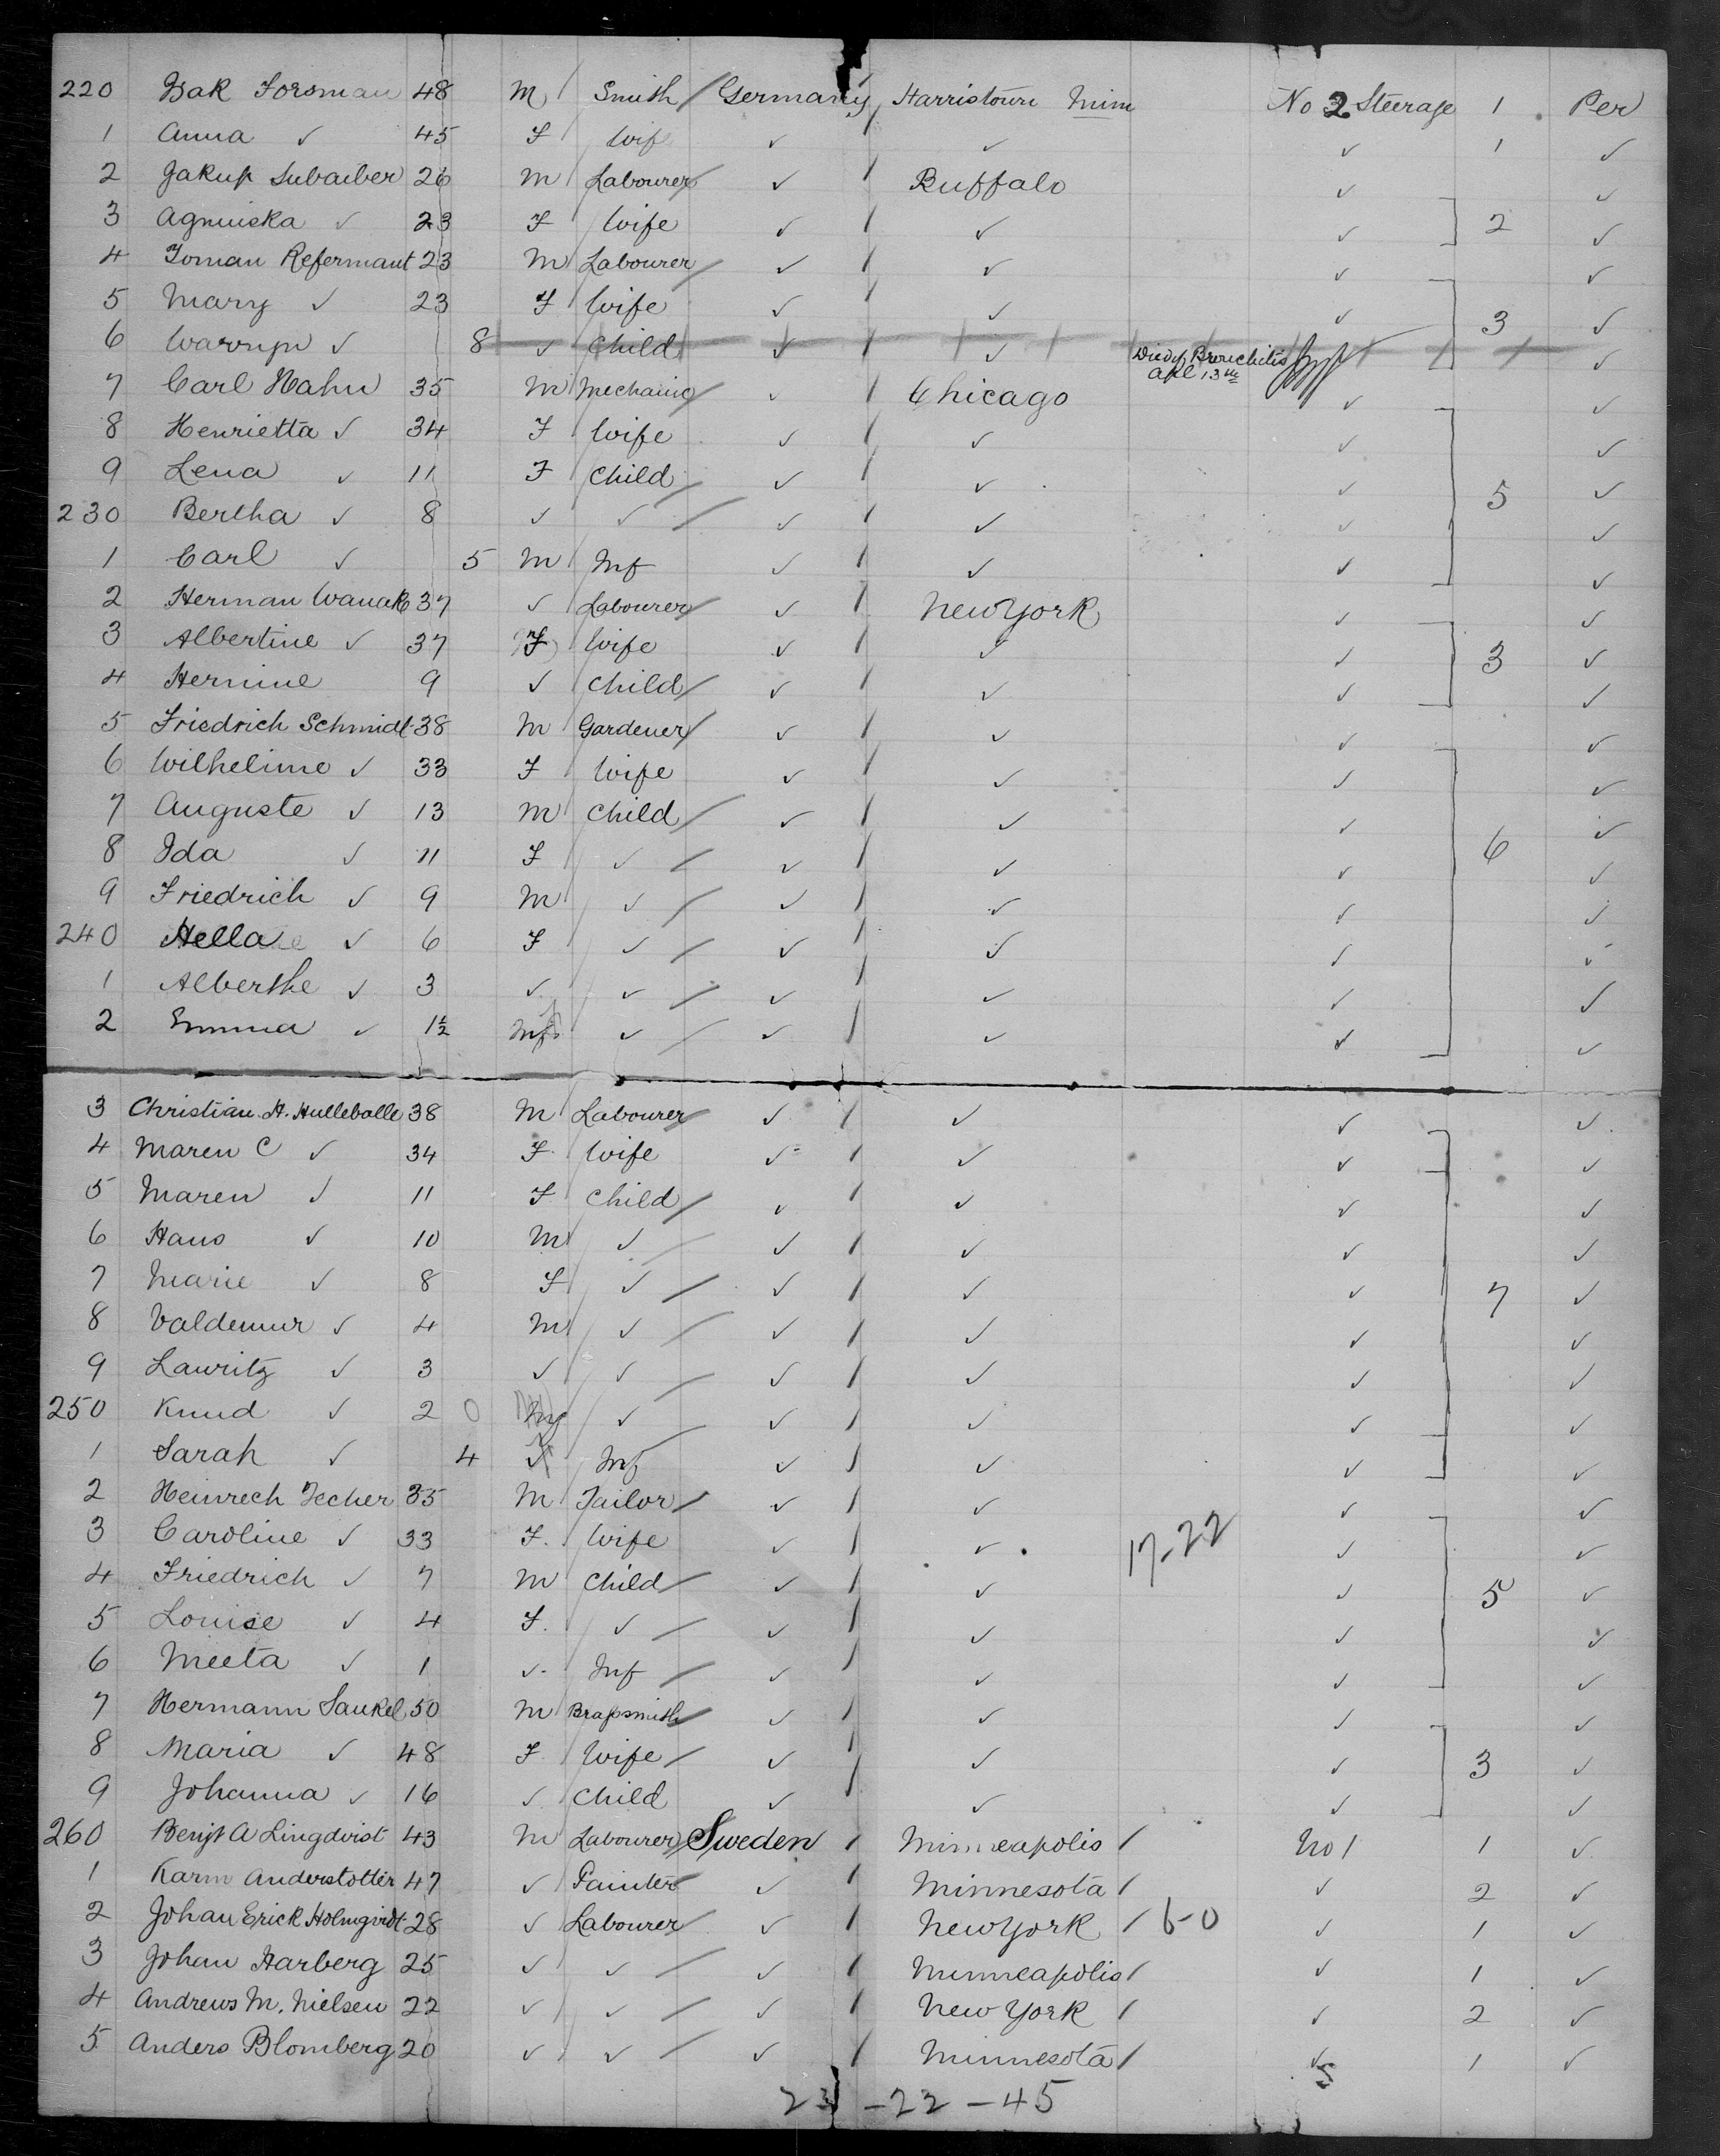 220 Isak Forsman 48 M Smith / Germany / Harristown Minn No 2 Steerage 1 Per
1 Anna ✓ 45 F Wife ✓ ✓ ✓ 1 ✓
2 Jakup Subaiber 26 M Labourer / ✓ / Buffalo ✓ ✓
3 Agniuska ✓ 23 F Wife ✓ / ✓ ✓ 2 ✓
4 Toman Refermant 23 M Labourer / ✓ / ✓ ✓ ✓
5 Mary ✓ 23 F Wife ✓ / ✓ ✓ 3 ✓
6 Wavryn ✓ 8 ✓ Child ✓ / ✓ Died of Bronchitis Apl 13th ✓
7 Carl Hahn 35 M Mechanic / ✓ / Chicago ✓ ✓
8 Henrietta ✓ 34 F Wife ✓ / ✓ ✓ ✓
9 Lena ✓ 11 F Child / ✓ / ✓ ✓ 5 ✓
230 Bertha ✓ 8 ✓ ✓ / ✓ / ✓ ✓ ✓
1 Carl ✓ 5 M Inf ✓ / ✓ ✓ ✓
2 Herman Wanak 37 ✓ Labourer / ✓ / New York ✓ ✓
3 Albertine ✓ 37 F Wife ✓ / ✓ ✓ 3 ✓
4 Hernine 9 ✓ Child / ✓ / ✓ ✓ ✓
5 Friedrich Schmidt 38 M Gardener / ✓ / ✓ ✓ ✓
6 Wilhelime ✓ 33 F Wife ✓ / ✓ ✓ ✓
7 Auguste ✓ 13 M Child / ✓ / ✓ ✓ ✓
8 Ida ✓ 11 F ✓ / ✓ / ✓ ✓ 6 ✓
9 Friedrich ✓ 9 M ✓ / ✓ / ✓ ✓ ✓
240 Hella ✓ 6 F ✓ / ✓ / ✓ ✓ ✓
1 Alberthe ✓ 3 ✓ ✓ / ✓ / ✓ ✓ ✓
2 Emma ✓ 1½ Inf ✓ / ✓ / ✓ ✓ ✓
3 Christian H. Hulleballe 38 M Labourer / ✓ / ✓ ✓ ✓
4 Maren C ✓ 34 F Wife ✓ / ✓ ✓ ✓
5 Maren ✓ 11 F Child / ✓ / ✓ ✓ ✓
6 Hans ✓ 10 M ✓ / ✓ / ✓ ✓ ✓
7 Marie ✓ 8 F ✓ / ✓ / ✓ ✓ 7 ✓
8 Valdemur ✓ 4 M ✓ / ✓ / ✓ ✓ ✓
9 Lauritz ✓ 3 ✓ ✓ / ✓ / ✓ ✓ ✓
250 Knud ✓ 2 0 ✓ / ✓ / ✓ ✓ ✓
1 Sarah ✓ 4 Inf ✓ / ✓ ✓ ✓
2 Heinrech Techer 35 M Tailor / ✓ / ✓ ✓ ✓
3 Caroline ✓ 33 F. Wife ✓ / ✓ 17-22 ✓ ✓
4 Friedrich ✓ 7 M Child / ✓ / ✓ ✓ 5 ✓
5 Louise ✓ 4 F. ✓ / ✓ / ✓ ✓ ✓
6 Meeta ✓ 1 ✓ Inf / ✓ / ✓ ✓ ✓
7 Hermann Saukel 50 M Brassmith / ✓ / ✓ ✓ ✓
8 Maria ✓ 48 F Wife / ✓ / ✓ ✓ 3 ✓
9 Johanna ✓ 16 ✓ Child ✓ / ✓ ✓ ✓
260 Bengt A Lingdvist 43 M Labourer Sweden / Minneapolis / No 1 1 ✓
1 Karin Anderstotter 47 ✓ Painter ✓ / Minnesota / ✓ 2 ✓
2 Johan Erick Holmqvidt 28 ✓ Labourer / ✓ / New York / 6-0 ✓ 1 ✓
3 Johan Harberg 25 ✓ ✓ / ✓ / Minneapolis / ✓ 1 ✓
4 Andrews M. Nielsen 22 ✓ ✓ / ✓ / New York / ✓ 2 ✓
5 Anders Blomberg 20 ✓ ✓ / ✓ / Minnesota / ✓ 1 ✓
5
23 - 22 - 45